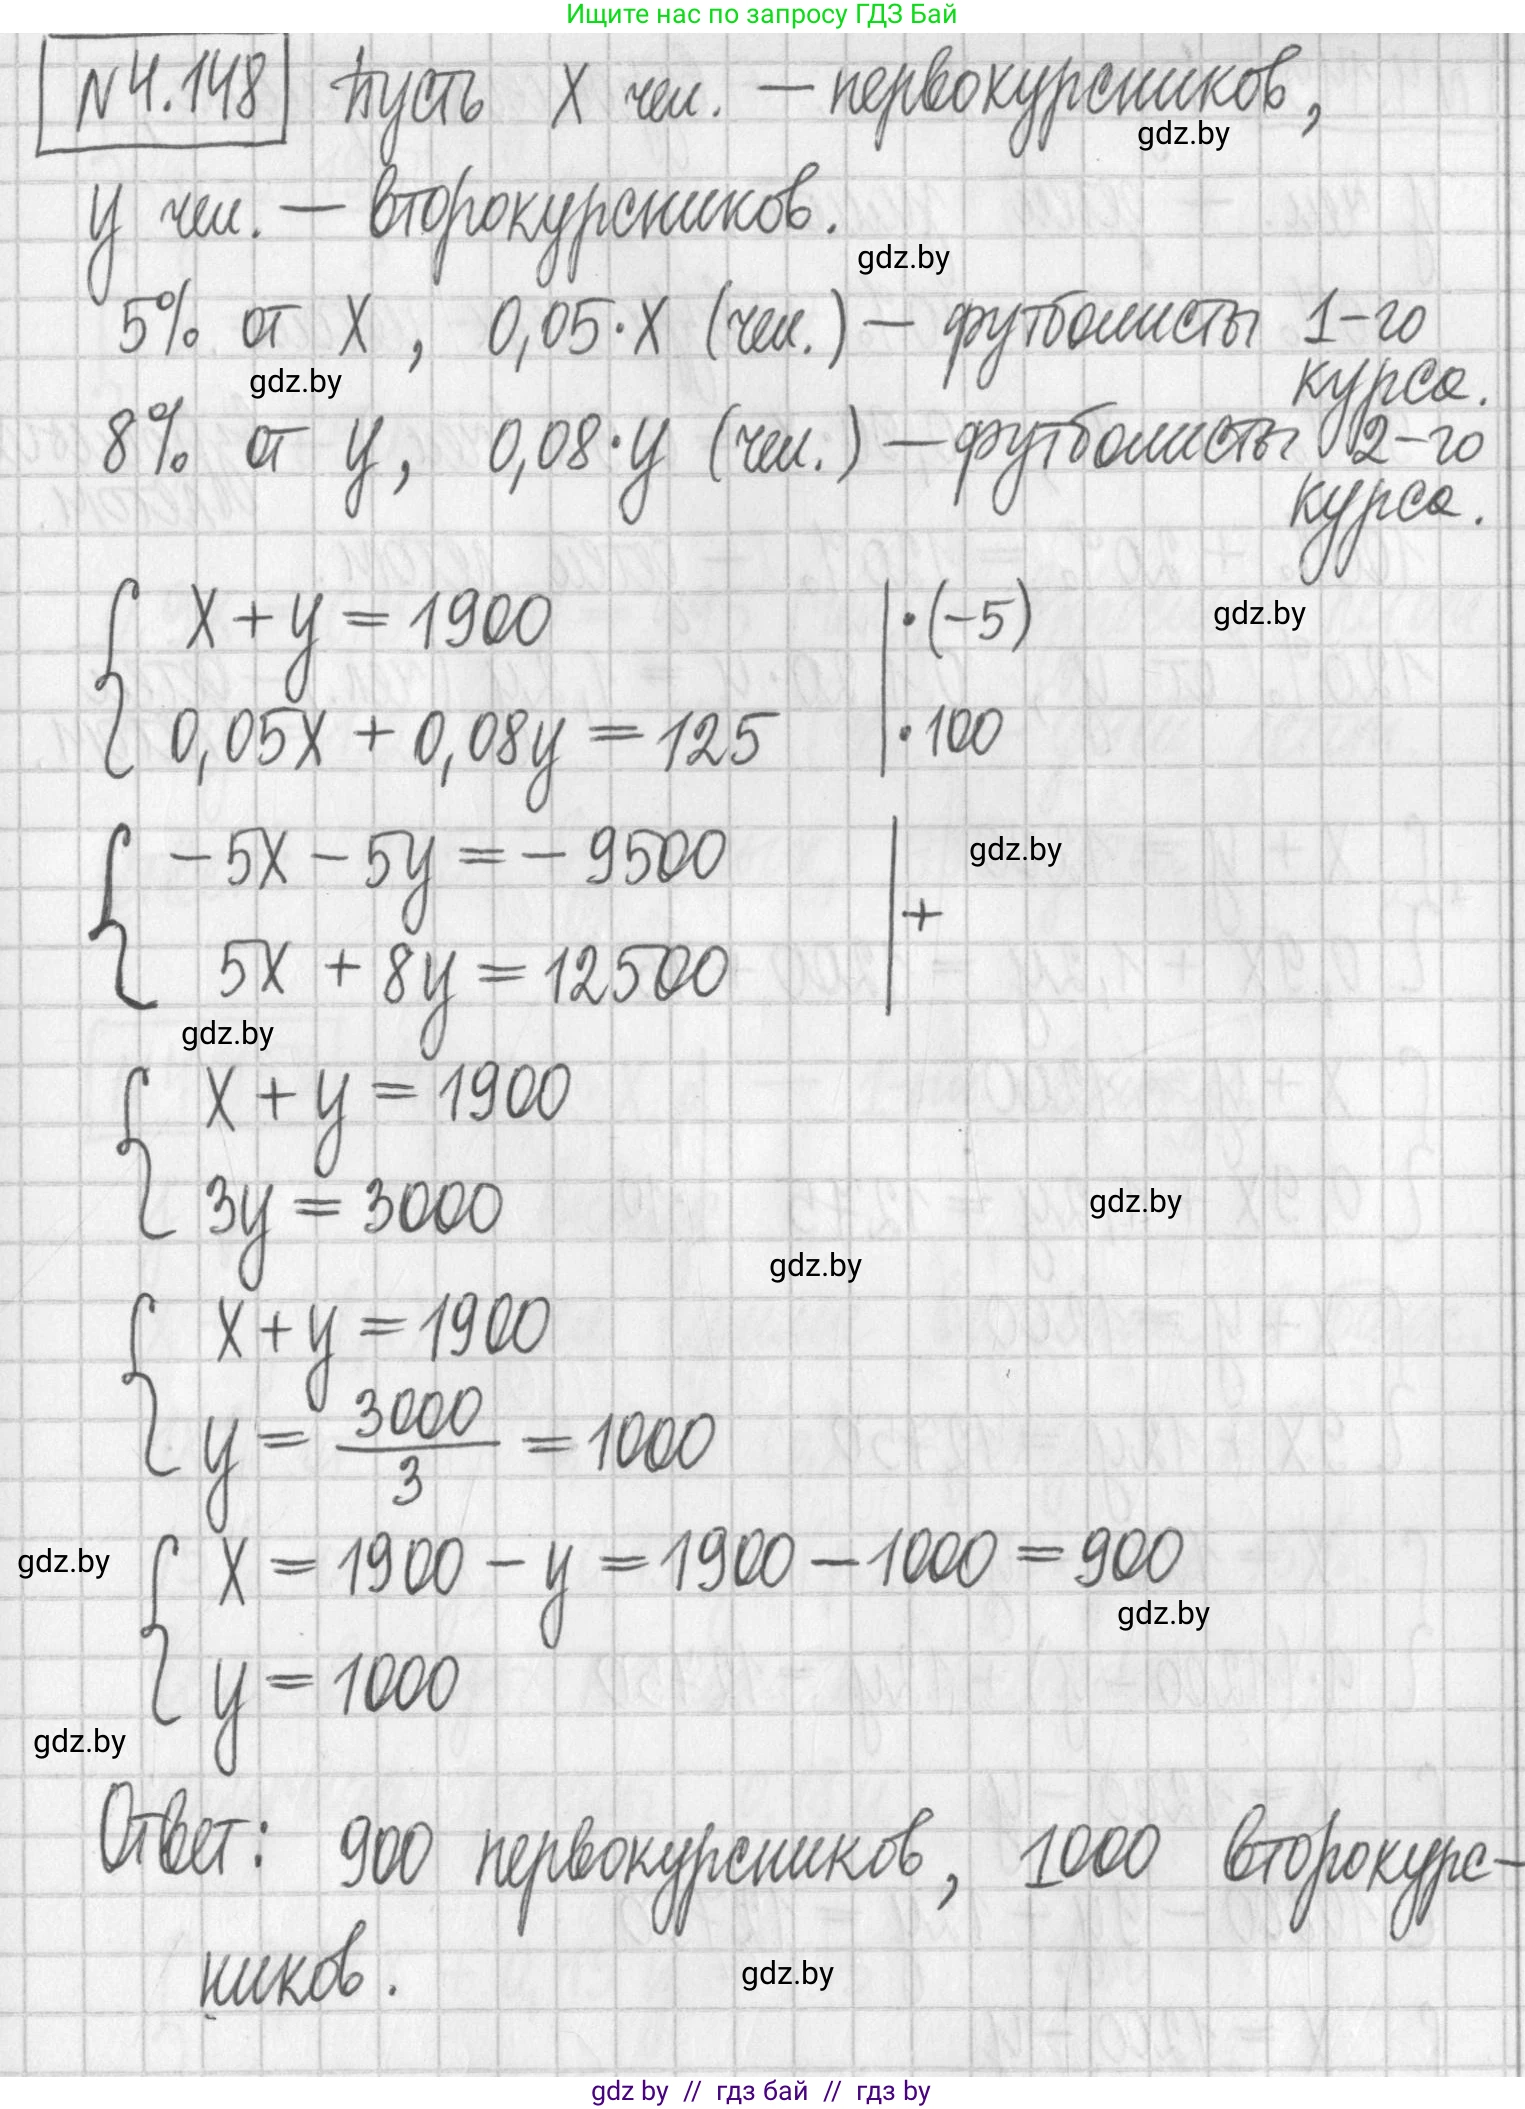 Ищите нас по запросу ГДЗ Бай
N4.148 Пусть x чел. — первокурсников,
gdz.by
y чел. — второкурсников.
gdz.by
5% от x, 0,05·x (чел.) — футболисты 1-го
курса.
gdz.by
8% от y, 0,08·y (чел.) — футболисты 2-го
курса.
{ x + y = 1900 | ·(-5)
gdz.by
0,05x + 0,08y = 125 | ·100
{ -5x - 5y = -9500
gdz.by
| +
5x + 8y = 12500
gdz.by
{ x + y = 1900
3y = 3000
gdz.by
gdz.by
{ x + y = 1900
y = 3000/3 = 1000
gdz.by
{ x = 1900 - y = 1900 - 1000 = 900
gdz.by
y = 1000
gdz.by
Ответ: 900 первокурсников, 1000 второкурс-
ников.
gdz.by
gdz by // гдз бай // гдз by